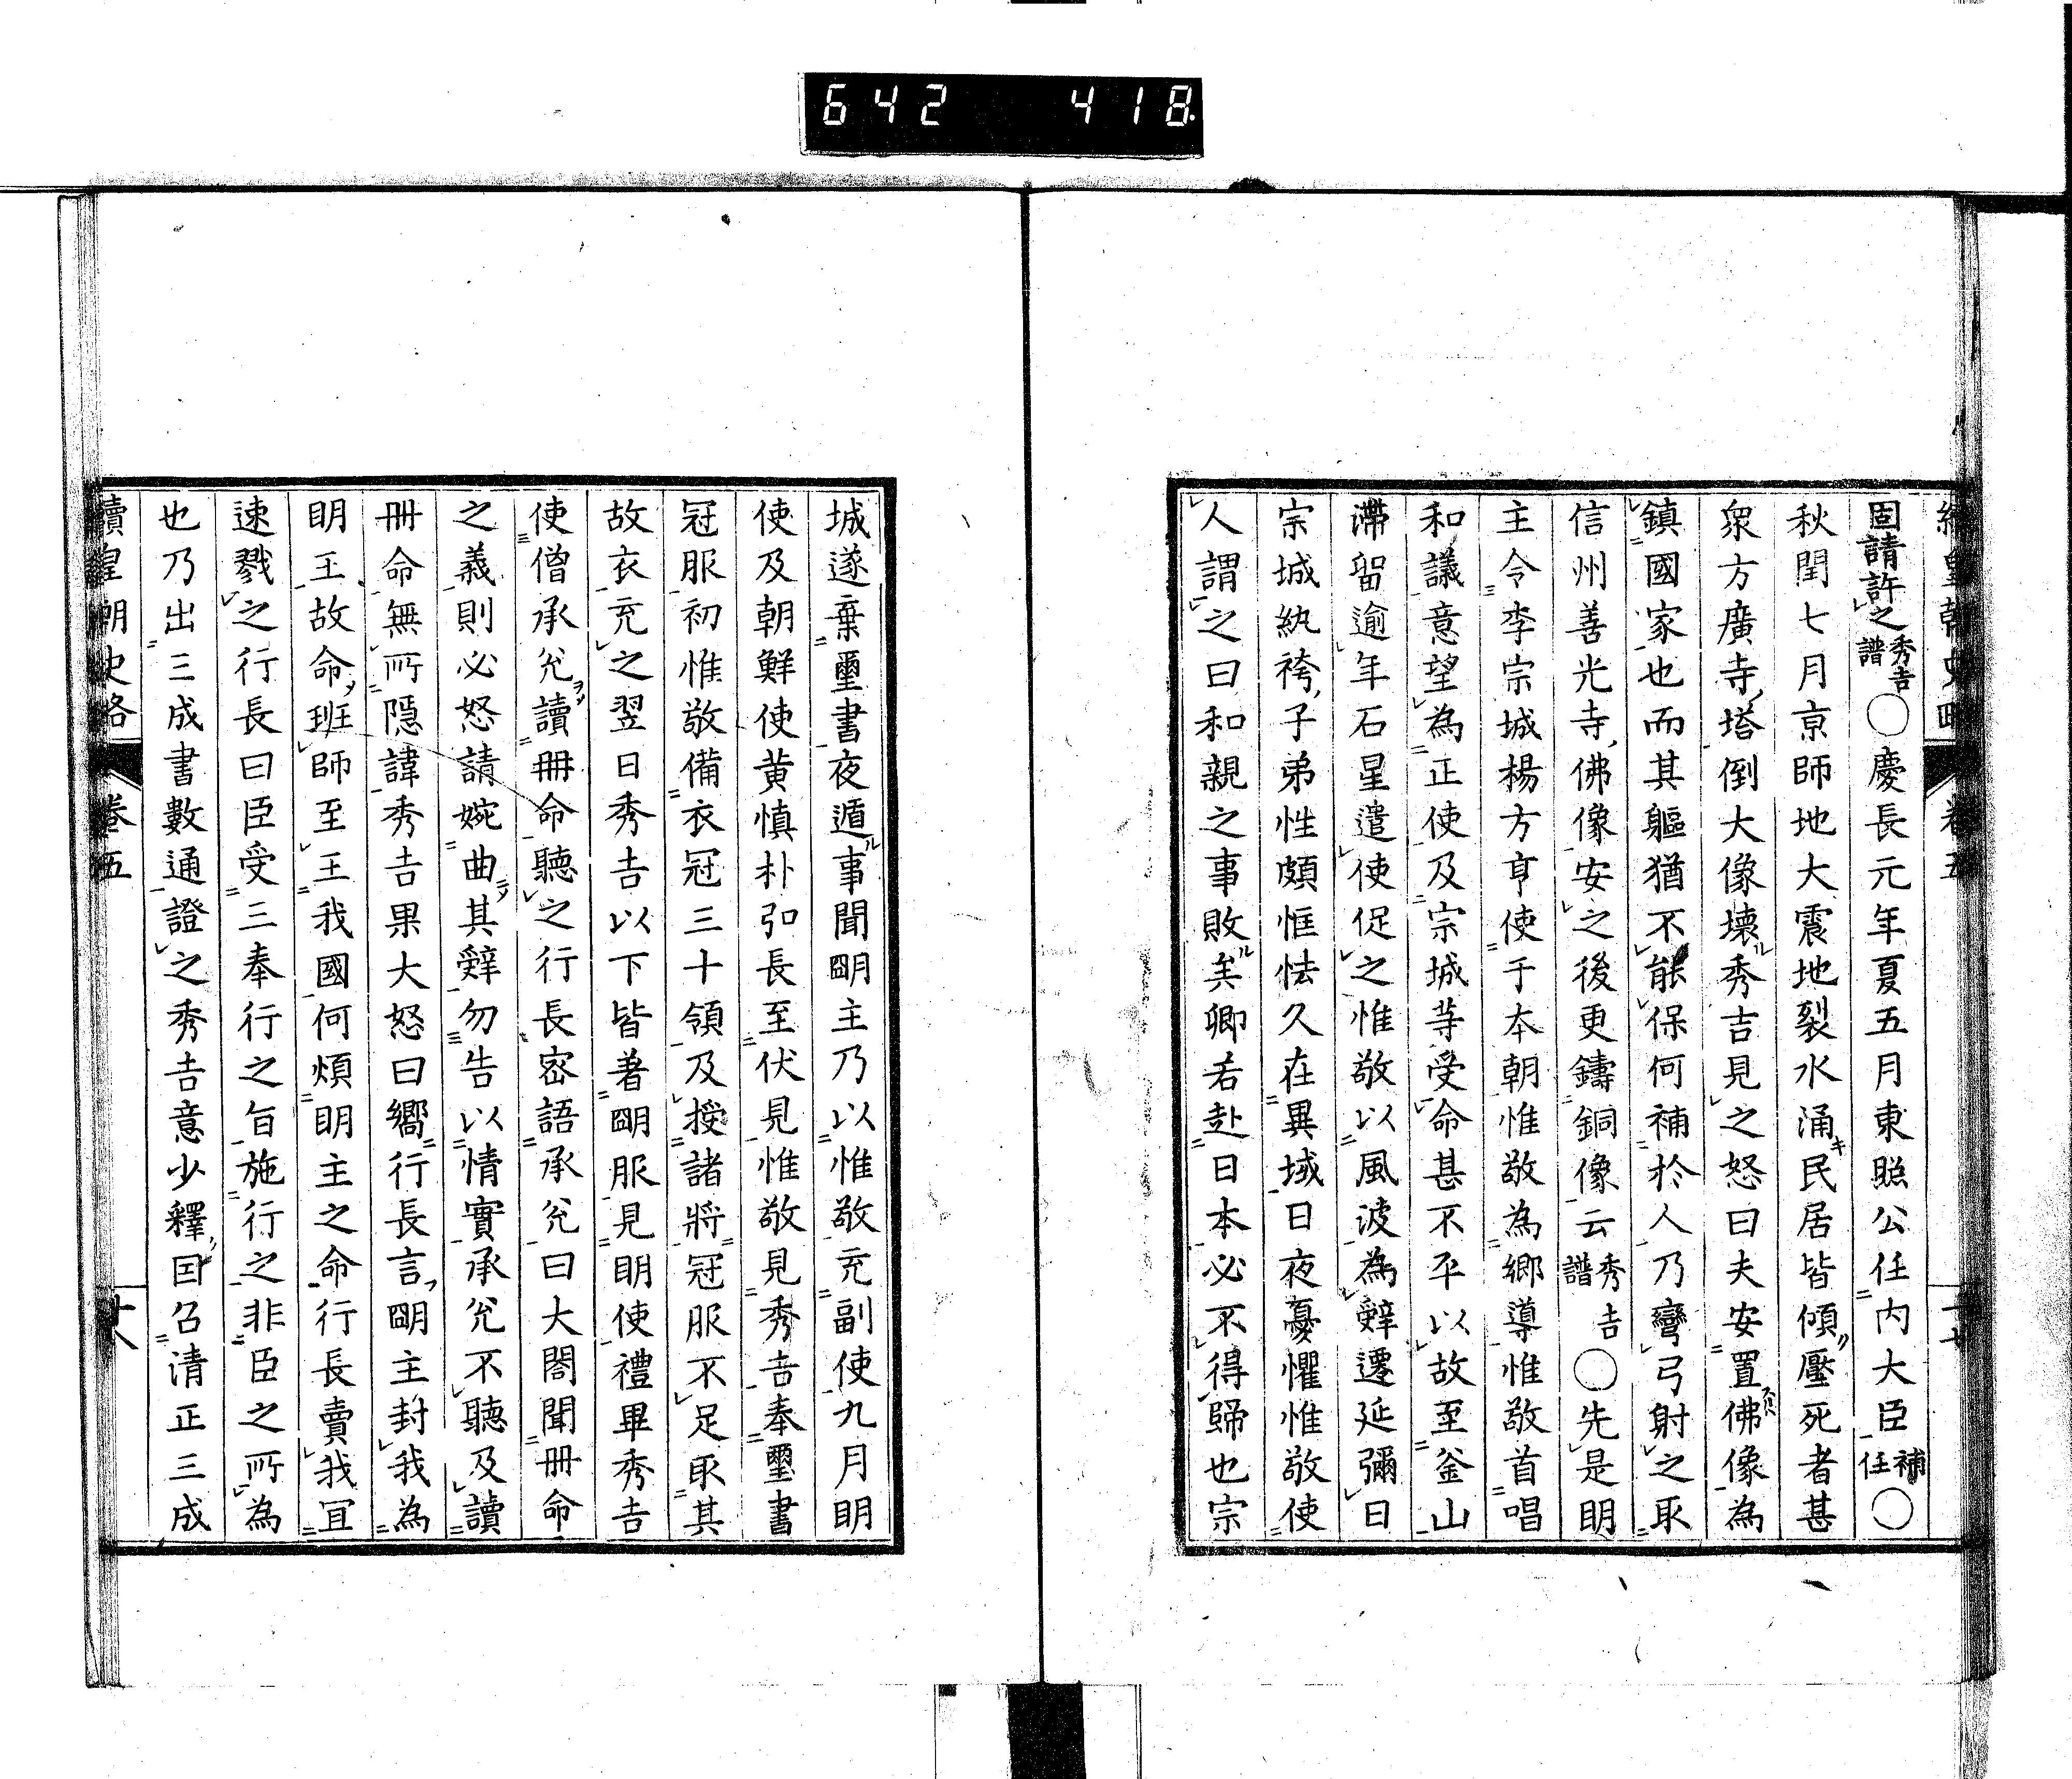 642 418
續皇朝史略 卷五 十七
固請許之秀吉譜○慶長元年夏五月東照公任内大臣補任○
秋閏七月京師地大震地裂水涌民居皆傾壓死者甚
衆方廣寺塔倒大像壊秀吉見之怒曰夫安置佛像為
鎮國家也而其軀猶不能保何補於人乃彎弓射之取
信州善光寺佛像安之後更鑄銅像云秀吉譜○先是明
主令李宗城楊方亨使于本朝惟敬為鄉導惟敬首唱
和議意望為正使及宗城等受命甚不平以故至釜山
滯留逾年石星遣使促之惟敬以風波為辭遷延彌日
宗城紈袴子弟性頗恇怯久在異域日夜憂懼惟敬使
人謂之曰和親之事敗矣卿若赴日本必不得歸也宗
城遂棄璽書夜遁事聞明主乃以惟敬充副使九月明
使及朝鮮使黄慎朴弘長至伏見惟敬見秀吉奉璽書
冠服初惟敬備衣冠三十領及授諸將冠服不足取其
故衣充之翌日秀吉以下皆著明服見明使禮畢秀吉
使僧承兌讀冊命聽之行長密語承兌曰大閤聞冊命
之義則必怒請婉曲其辭勿告以情實承兌不聽及讀
冊命無所隱諱秀吉果大怒曰嚮行長言明主封我為
明王故命班師至王我國何煩明主之命行長賣我宜
速戮之行長曰臣受三奉行之旨施行之非臣之所為
也乃出三成書數通證之秀吉意少釋因召清正三成
續皇朝史略 卷五 十八